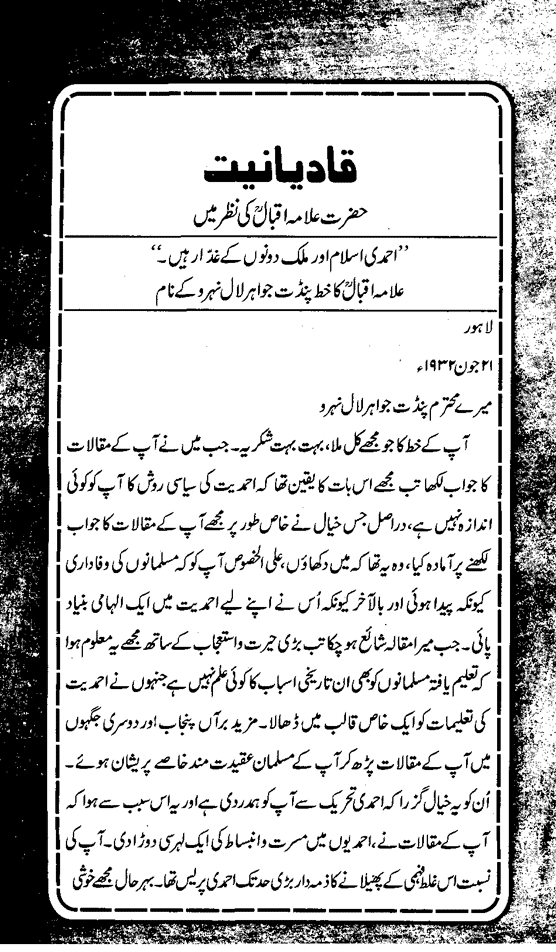 قادیانیت
حضرت علامہ اقبالؒ کی نظر میں
’’احمدی اسلام اور ملک دونوں کے غدّار ہیں۔‘‘
علامہ اقبالؒ کا خط پنڈت جواہر لال نہرو کے نام
لاہور
۲۱ جون ۱۹۳۲ء
میرے محترم پنڈت جواہر لال نہرو
آپ کے خط کا جو مجھے کل ملا، بہت بہت شکریہ۔ جب میں نے آپ کے مقالات
کا جواب لکھا تب مجھے اس بات کا یقین تھا کہ احمدیت کی سیاسی روش کا آپ کو کوئی
اندازہ نہیں ہے، دراصل جس خیال نے خاص طور پر مجھے آپ کے مقالات کا جواب
لکھنے پر آمادہ کیا، وہ یہ تھا کہ میں دکھاؤں، علی الخصوص آپ کو کہ مسلمانوں کی وفاداری
کیونکہ پیدا ہوئی اور بالآخر کیونکہ اُس نے اپنے لیے احمدیت میں ایک الہامی بنیاد
پائی۔ جب میرا مقالہ شائع ہو چکا تب بڑی حیرت و استعجاب کے ساتھ مجھے یہ معلوم ہوا
کہ تعلیم یافتہ مسلمانوں کو بھی ان تاریخی اسباب کا کوئی علم نہیں ہے جنہوں نے احمدیت
کی تعلیمات کو ایک خاص قالب میں ڈھالا۔ مزید برآں پنجاب اور دوسری جگہوں
میں آپ کے مقالات پڑھ کر آپ کے مسلمان عقیدت مند خاصے پریشان ہوئے۔
اُن کو یہ خیال گزرا کہ احمدی تحریک سے آپ کو ہمدردی ہے اور یہ اس سبب سے ہوا کہ
آپ کے مقالات نے، احمدیوں میں مسرت و انبساط کی ایک لہر سی دوڑا دی۔ آپ کی
نسبت اس غلط فہمی کے پھیلانے کا ذمہ دار بڑی حد تک احمدی پریس تھا۔ بہرحال مجھے خوشی